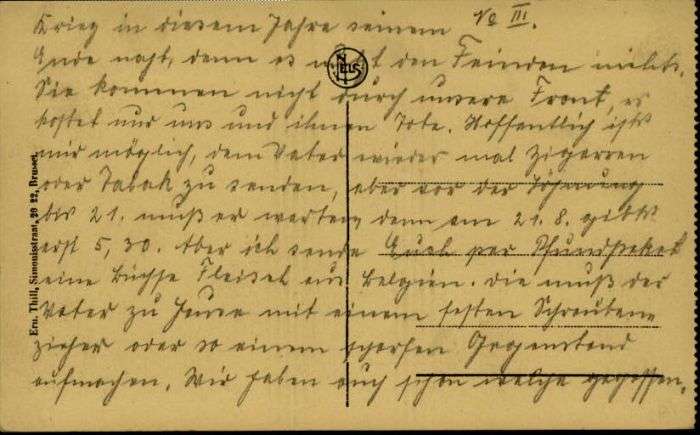 No III.
Krieg in diesem Jahre seinem
Ende naht, denn es nützt den Feinden nichts.
Sie kommen nicht durch unsere Front, es
kostet nur uns und ihnen Tote. Hoffentlich ists
mir möglich, dem Vater wieder mal Zigarren
oder Tabak zu senden, aber vor der Löhnung
bis 21. muß er warten, denn am 21. 8. gibts
erst 5,30. Aber ich sende Euch per Pfundpaket
eine Büchse Fleisch aus Belgien. Die muß der
Vater zu Hause mit einem festen Schraubene
zieher oder so einem scharfen Gegenstand
aufmachen. Wir haben auch schon welche gegessen.
NELS
Ern. Thill, Simonisstraat, 20 22, Brussel.